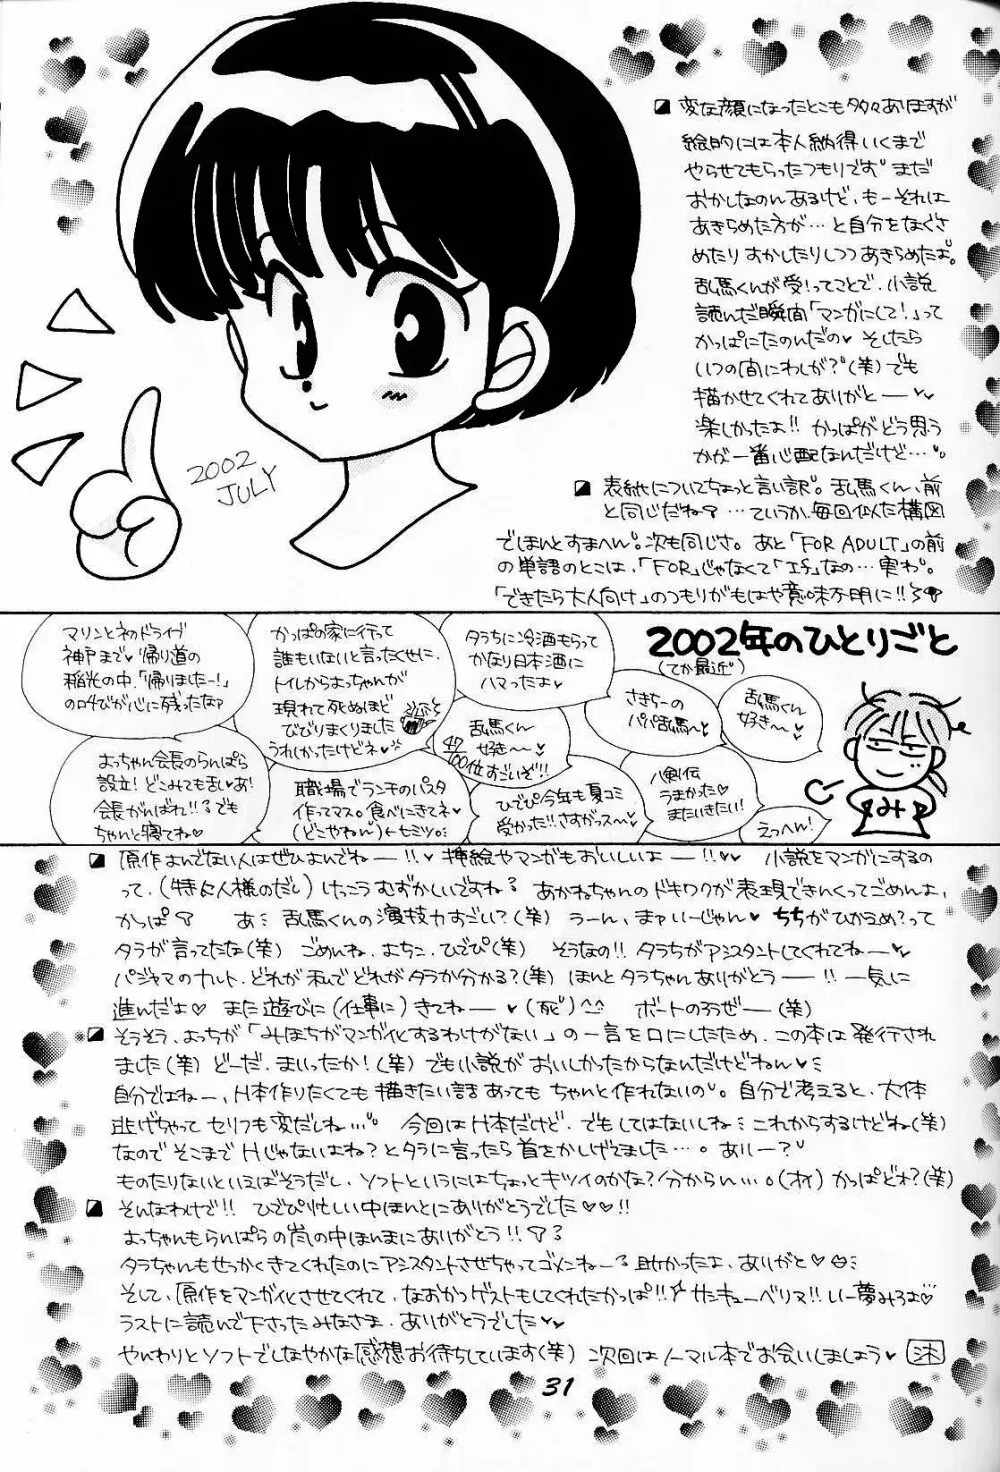 変な顔になったとこも多々ありますが
絵的には本人納得いくまで
やらせてもらったつもりです。まだ
おかしなのんあるけど、もーそれは
あきらめた方が…と自分をなぐさ
めたりすかしたりしつつあきらめたよ。
乱馬くんが受!ってことで、小説
読んだ瞬間「マンガにして!」って
かっぱにたのんだの♥ そしたら
いつの間にわしが?(笑)でも
描かせてくれてありがとー♥
楽しかったよ!! かっぱがどう思う
かが一番心配なんだけど…。
表紙についてちょっと言い訳。乱馬くん、前
と同じだね? …ていうか、毎回似た構図
でほんとすまへん。次も同じさ。あと「FOR ADULT」の前
の単語のとこは、「FOR」じゃなくて「If」なの…実わ。
「できたら大人向け」のつもりがもはや意味不明に!!
2002 JULY
2002年のひとりごと
(てか最近)
マリンとネのドライブ
神戸まで♥帰り道の
稲光の中、「帰りましたー!」
の叫びが心に残ったなァ
かっぱの家に行って
誰もいないと言ったくせに、
トイレからよっちゃんが
現れて死ぬほど
びびりまくりました
うれしかったけどネ♥
タラちに冷酒もらって
かなり日本酒に
ハマったよ♥
さきちーの
パパ乱馬〜と
乱馬くん
好き〜♥
よっちゃん会長のらんぱら
設立!どこみても乱♥よ!
会長がんばれ!!でも
ちゃんと寝てね♡
職場でランチのパスタ
作ってマス。食べにきてネ♥
(どこやねん)←セミツ
乱馬くん
好き〜〜♥
100位すごいぞ!!
ひでぴ今年も夏コミ
受かった!!さすがっス〜♥
八剣伝
うまかった♡
またいきたい!
えっへん!
み
原作よんでない人はぜひよんでねー!!♥ 挿絵やマンガもおいしいよー!!♥♥ 小説をマンガにするの
って、(特に人様のだし)けっこうむずかしいですね? あかねちゃんのドキワクが表現できんくってごめんよ、
かっぱ? あ、乱馬くんの演技力すごい?(笑) うーん、まァいーじゃん♥ ちちがひかえめ?って
タラが言ってたな(笑) ごめんね、よちこ、ひでぴ(笑) そうなの!! タラちがアシスタントしてくれてねー♥
パジャマのナルト、どれが私でどれがタラか分かる?(笑) ほんとタラちゃんありがとうー!! 一気に
進んだよ♡ また遊びに(仕事に)きてねー♥(死)^^ ボートのろうぜー(笑)
そうそう、よっちが「みほちがマンガ化するわけがない」の一言を口にしたため、この本は発行され
ました(笑) どーだ、まいったか!(笑) でも小説がおいしかったからなんだけどねん♥
自分ではねー、H本作りたくても描きたい話あってもちゃんと作れないの。自分で考えると、大体
逃げちゃってセリフも変だしね…。今回はH本だけど、でもしてはないしね これからするけどね(笑)
なのでそこまでHじゃないよね?とタラに言ったら首をかしげてました…。ありー?
ものたりないといえばそうだし、ソフトというにはちょっとキツイのかな?分からん…。(オイ) かっぱどれ?(笑)
そんなわけで!! ひでぴ忙しい中ほんとにありがとうでした♡♡!!
よっちゃんもらんぱらの嵐の中ほんまにありがとう!!
タラちゃんもせっかくきてくれたのにアシスタントさせちゃってゴメンねー 助かったよ、ありがと♡
そして、原作をマンガ化させてくれて、なおかつゲストもしてくれたかっぱ!! サンキューベリマ!! いー夢みろよ♡
ラストに読んで下さったみなさま、ありがとうでした♥
やんわりとソフトでしなやかな感想お待ちしています(笑) 次回はノーマル本でお会いしましょう♥
31